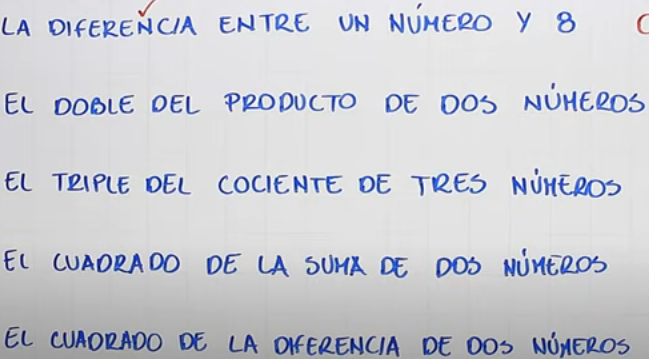 LA DIFERENCIA ENTRE UN NÚMERO Y 8
EL DOBLE DEL PRODUCTO DE DOS NÚMEROS
EL TRIPLE DEL COCIENTE DE TRES NÚMEROS
EL CUADRADO DE LA SUMA DE DOS NÚMEROS
EL CUADRADO DE LA DIFERENCIA DE DOS NÚMEROS